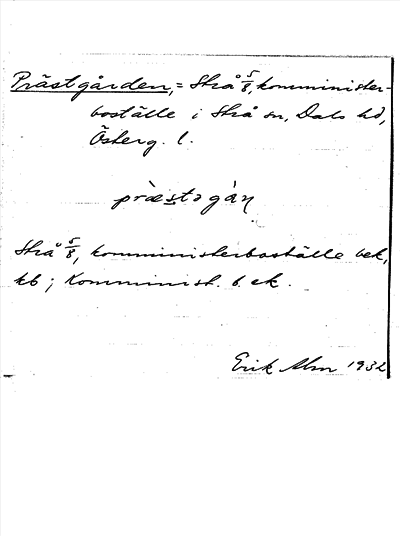 Prästgården, = Strå 5/8, komminister-
boställe i Strå sn, Dals hd,
Österg. l.
pràestǝgàɳ
Strå 5/8, komministerboställe bek,
kb; Komminist. b. ek.
Erik Alm 1932